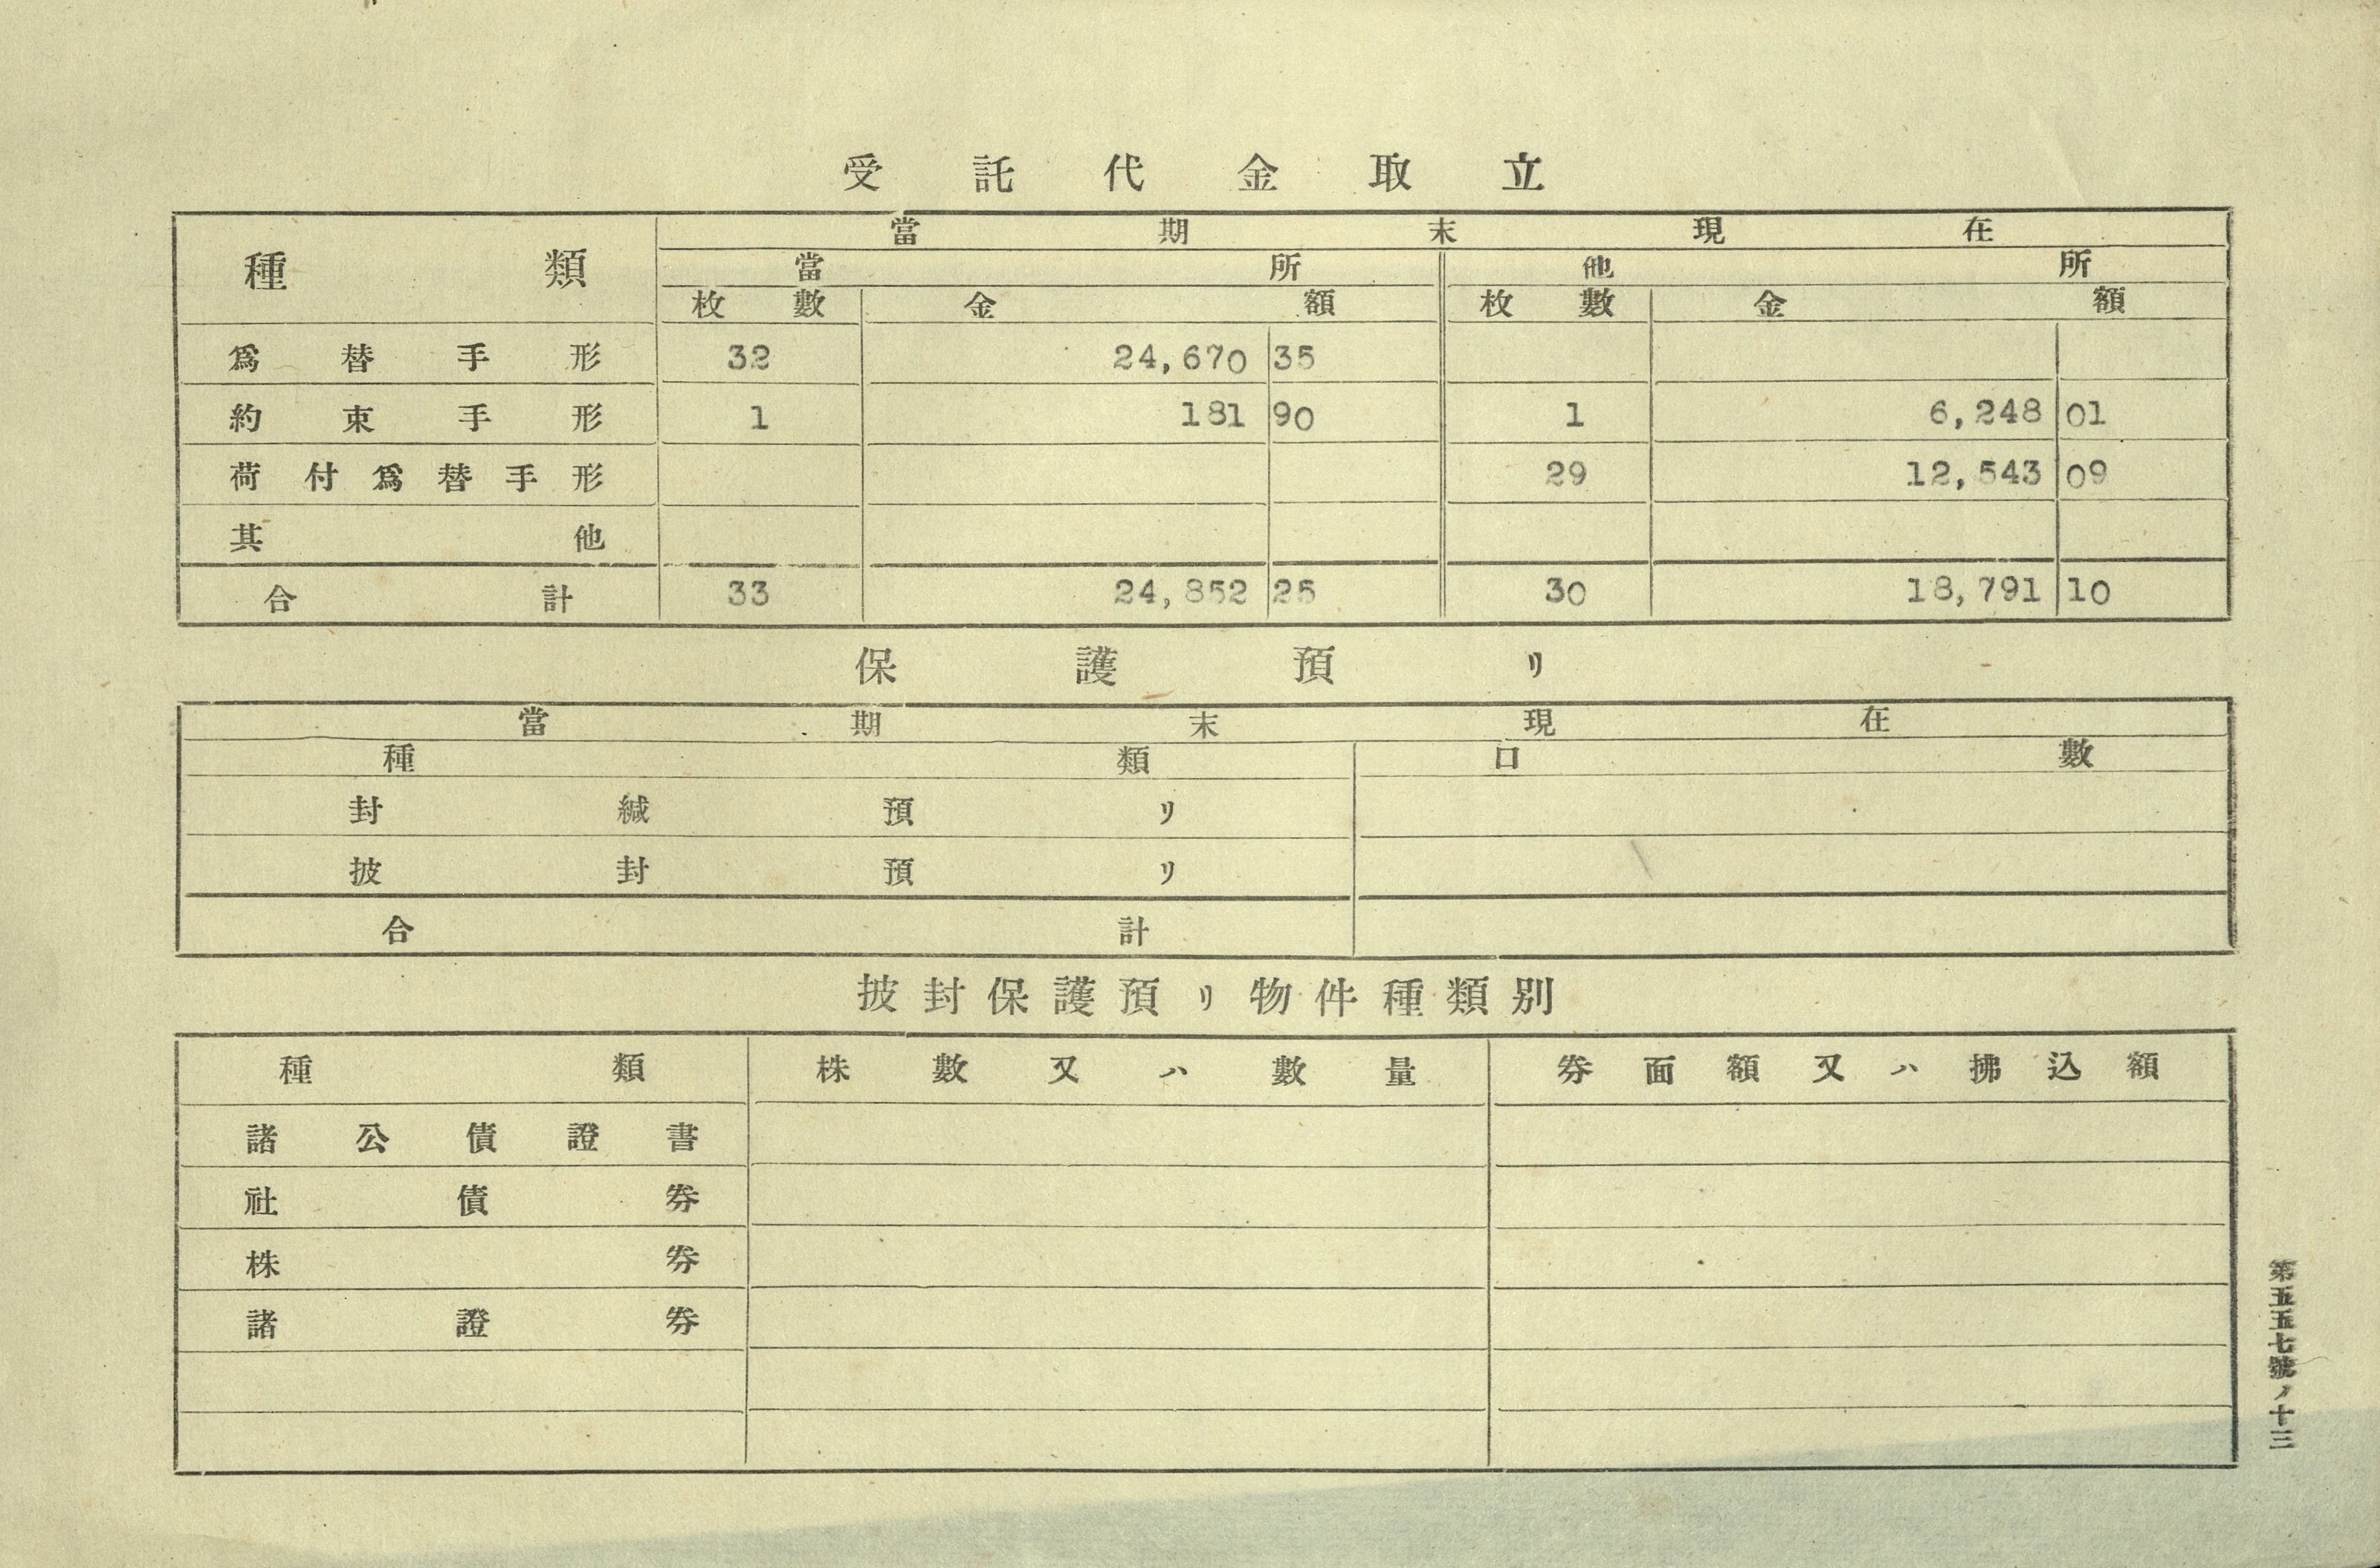 受託代金取立
種類 當期末現在
當所 他所
枚數 金額 枚數 金額
爲替手形 32 24,670 35
約束手形 1 181 90 1 6,248 01
荷付爲替手形 29 12,543 09
其他
合計 33 24,852 25 30 18,791 10
保護預リ
當期末現在
種類 口數
封緘預リ
披封預リ
合計
披封保護預リ物件種類別
種類 株數又ハ數量 券面額又ハ拂込額
諸公債證書
社債券
株券
諸證券
第五五七號ノ十三